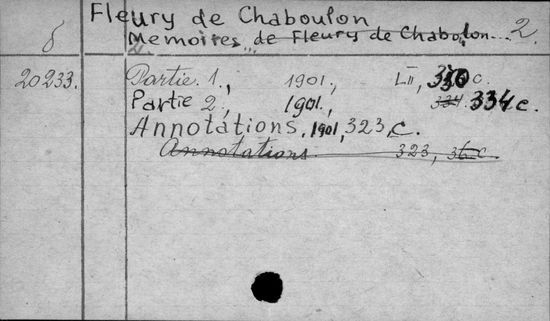 Fleury de Chaboulon
б Memoires de Fleury de Chaboulon... 2.
20233. Partie 1., 1901., LII, 350 c.
Partie 2., 1901., 334 334 c.
Annotations, 1901, 323, c.
Annotations. 323, c.